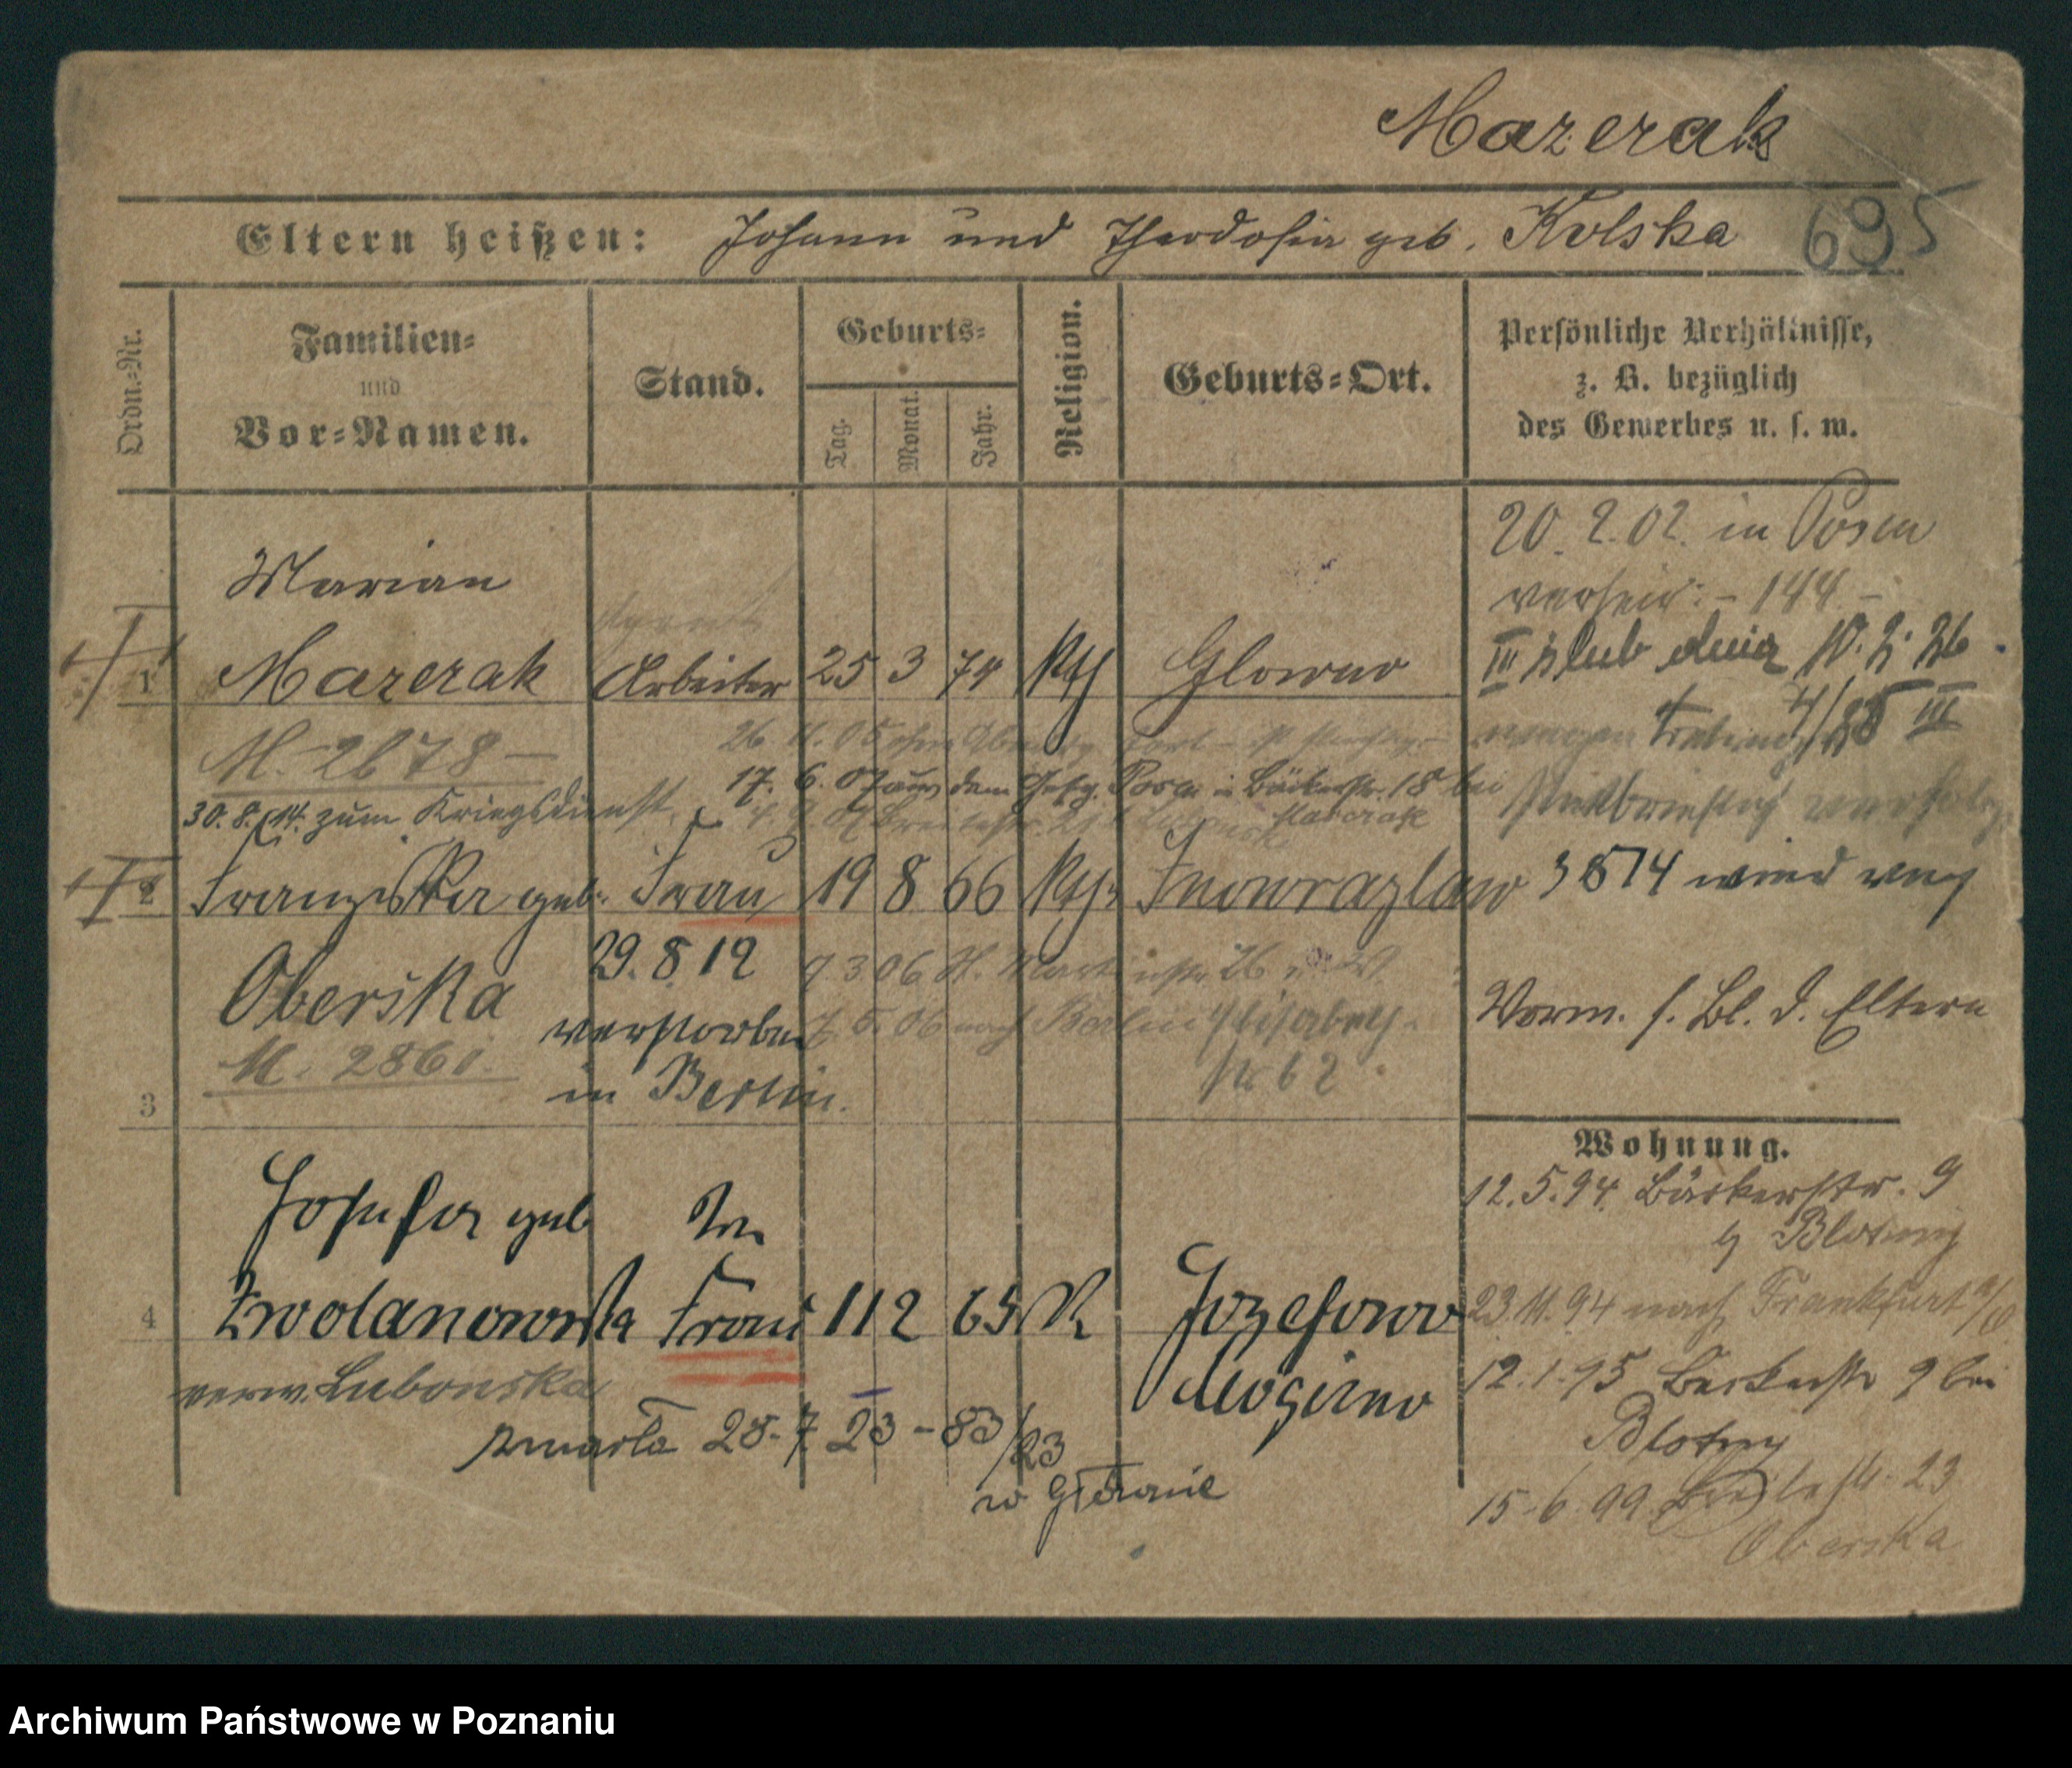 Mazerak
Eltern heißen: Johann und Theodosia geb. Kolska
695
Ordn.=Nr.
Familien=
und
Vor=Namen.
Stand.
Geburts=
Tag.
Monat.
Jahr.
Religion.
Geburts=Ort.
Persönliche Verhältnisse,
z. B. bezüglich
des Gewerbes u. s. w.
20. 2. 02. in Posen
- 144 -
Marian
1 Mazerak Arbeiter 25 3 74 kth Glowno
III ślub dnia 10. 2. 26
M. 2678 -
26. 11. 05
III
17. 6. 07 aus dem Gefg. Posen in Bäckerstr. 18 bei
Mazerak
30. 8. 14. zum Kriegsdienst
2 Franziska geb. Frau 19 8 66 kth. Inowrazlaw
3874 wird
Oberska 29. 8 12
7. 3 06 St. Martinstr. 26
verstorben
5. 06 nach Berlin
in Berlin.
No 62
M. 2861.
Vorm. s. Bl. d. Eltern
3
Wohnung.
12. 5. 94. Bäckerstr. 9
Josefa geb
4 Zwolanowska Frau 1 12 65 K Jozefowo
Mogilno
23. 11. 94 nach Frankfurt a/O
verw. Lubonska
12. 1. 95 Bäckerstr 9 bei
Blotny
zmarła 28. 7. 23 - 83/23
w Głównie
15. 6. 99. Breitestr. 23
Oberska
Archiwum Państwowe w Poznaniu